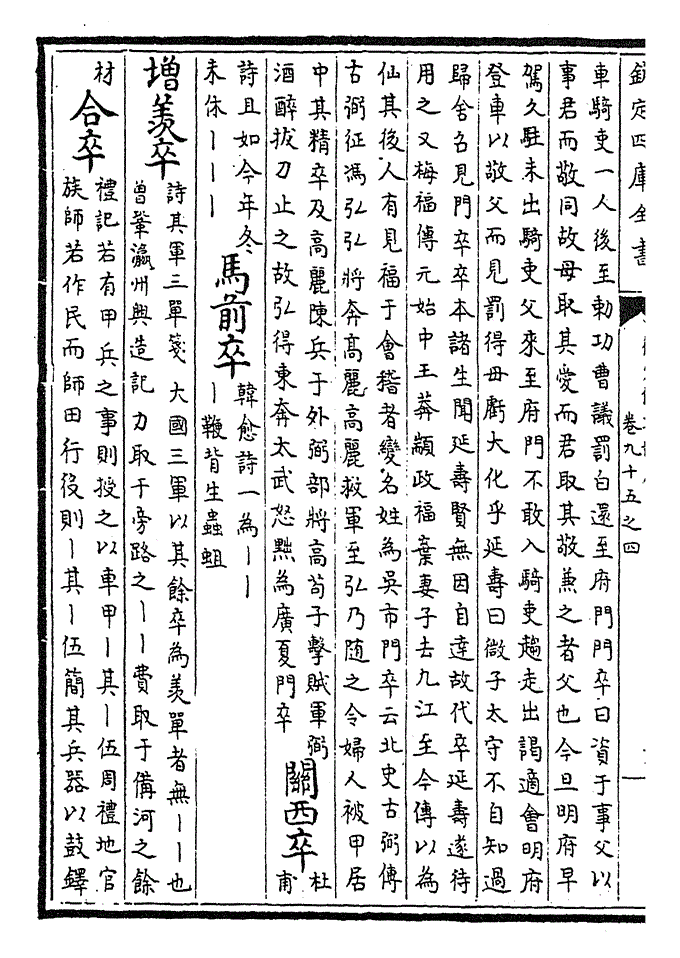 欽定四庫全書
卷九十五之四
車騎吏一人後至勅功曹議罰白還至府門門卒曰資于事父以
事君而敬同故母取其愛而君取其敬兼之者父也今旦明府早
駕久駐未出騎吏父來至府門不敢入騎吏趨走出謁適會明府
登車以敬父而見罰得毋虧大化乎延壽曰微子太守不自知過
歸舍召見門卒卒本諸生聞延壽賢無因自達故代卒延壽遂待
用之又梅福傳元始中王莽顓政福棄妻子去九江至今傳以為
仙其後人有見福于會稽者變名姓為吳市門卒云北史古弼傳
古弼征馮弘弘將奔高麗高麗救軍至弘乃随之令婦人被甲居
中其精卒及高麗陳兵于外弼部將高苟子擊賊軍弼
酒醉拔刀止之故弘得東奔太武怒黜為廣夏門卒
關西卒
杜甫
詩且如今年冬
未休丨丨丨
馬前卒
韓愈詩一為丨丨
丨鞭背生蟲蛆
增羨卒
詩其軍三單箋大國三軍以其餘卒為羨單者無丨丨也
曾鞏瀛州興造記力取于旁路之丨丨費取于備河之餘
材
合卒
禮記若有甲兵之事則授之以車甲丨其丨伍周禮地官
族師若作民而師田行役則丨其丨伍簡其兵器以鼓鐸